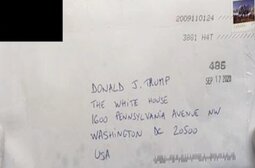 2009110124
3881 H4T
486
SEP 17 2020
DONALD J. TRUMP
THE WHITE HOUSE
1600 PENNSYLVANIA AVENUE NW
WASHINGTON DC 20500
USA